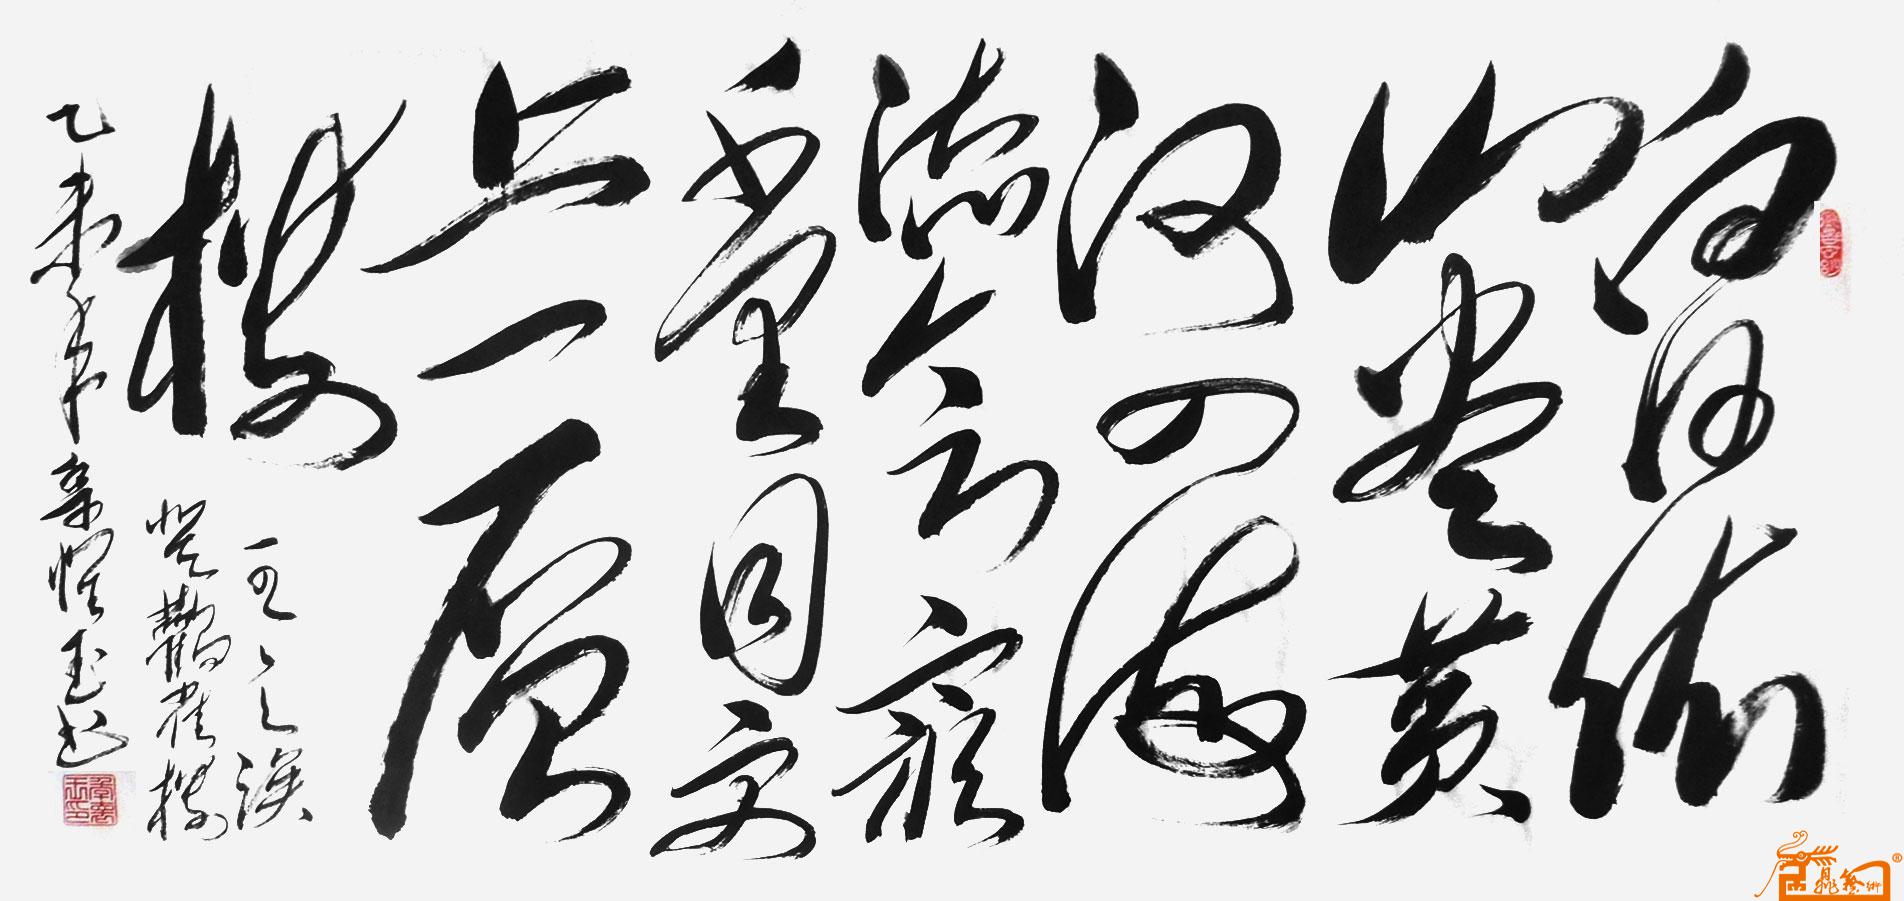 白日依
山尽黄
河入海
流欲穷
千里目更
上一层
楼
王之涣
登鹳雀楼
乙未年玉书